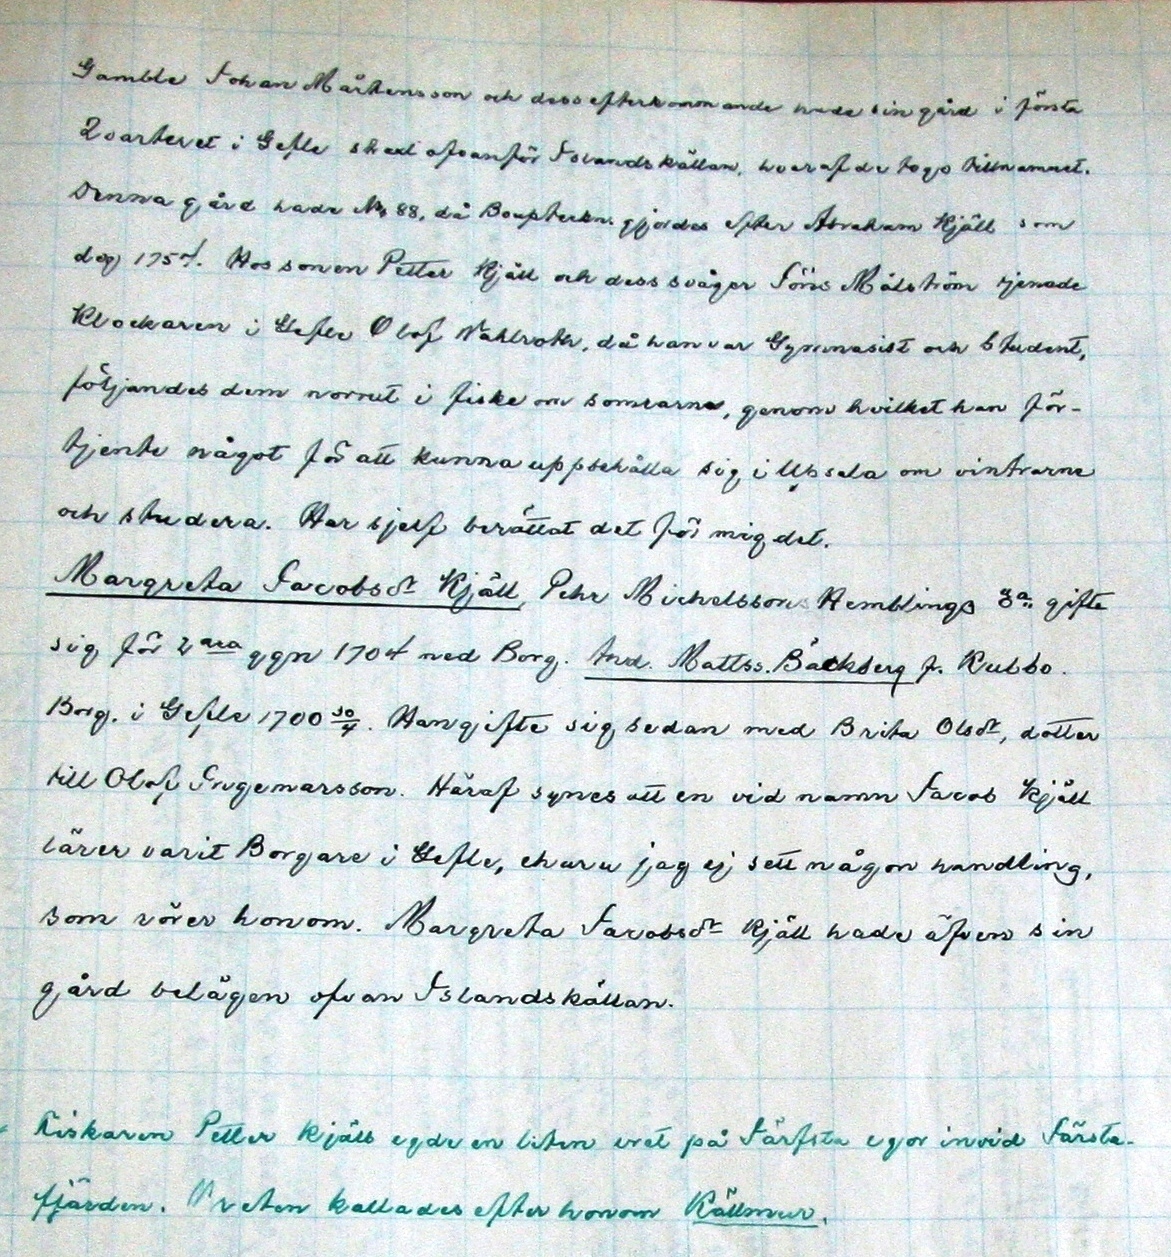 Gamble Johan Mårtensson och dess efterkommande hade sin gård i första
Qvarteret i Gefle straxt ofvanför Islandskällan, hvaraf de togo tillnamnet.
Denna gård hade No 88, då Boupteckn. gjordes efter Abraham Kjäll som
dog 1754. Hos sonen Petter Kjäll och dess svåger Jöns Målström tjenade
Klockaren i Gefle Olof Vahlroth, då han var Gymnasist och Student,
följandes dem norrut i fiske om somrarna, genom hvilket han för-
tjente något för att kunna uppehålla sig i Upsala om vintrarne
och studera. Har sjelf berättat det för mig det.
Margreta Jacobsdr Kjäll, Pehr Michelssons Hemblings 3a: gifte
sig för 2 ara ggn 1704 med Borg. And. Mattss. Bäckberg fr. Kubbo.
Borg. i Gefle 1700 30/4. Han gifte sig sedan med Brita Olsdr, dotter
till Olof Ingemarsson. Häraf synes att en vid namn Jacob Kjäll
lärer varit Borgare i Gefle, churu jag ej sett någon handling,
som rörer honom. Margreta Jacobsdr Kjäll hade äfven sin
gård belägen ofvan Islandskällan.
Fiskaren Petter Kjäll egde en liten vret på Järfsta egor invid Järsta-
fjärden. Vreten kallades efter honom Källmur.